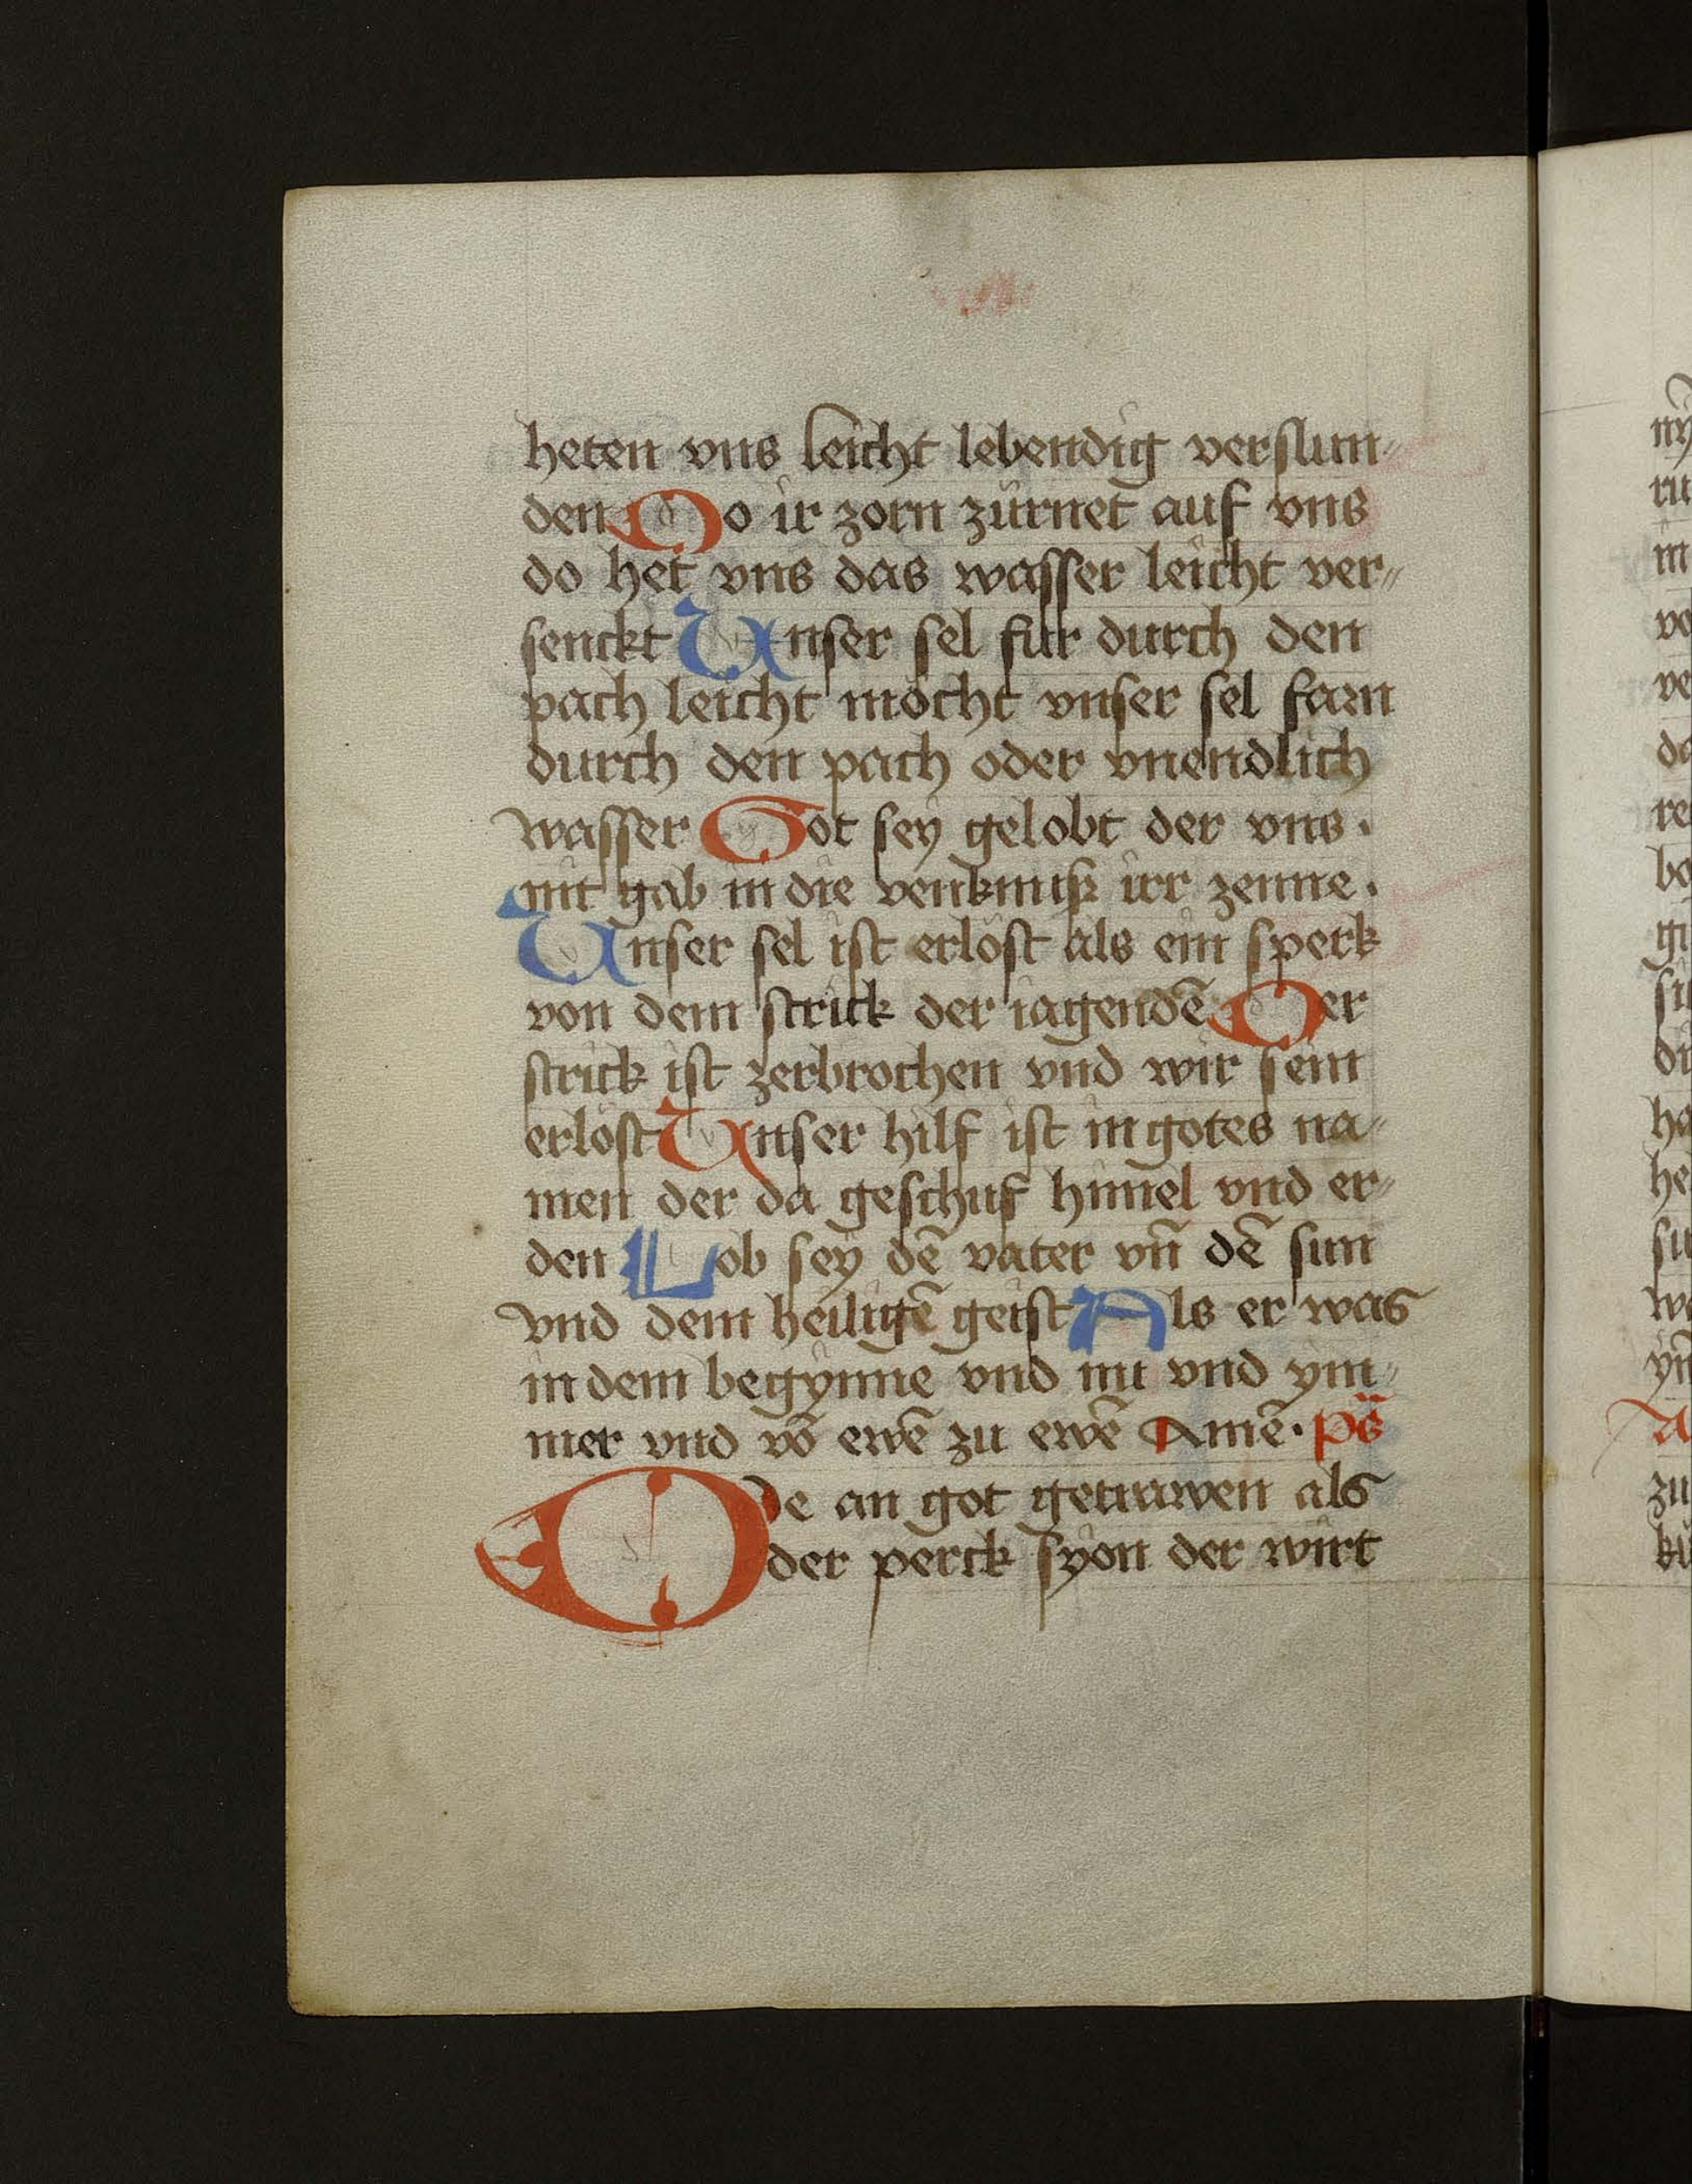 heten vns leicht lebendig verslun-
den Do ir zorn zürnet auf vns
do het vns das wasser leicht ver-
senckt Unser sel fur durch den
pach leicht möcht vnser sel farn
durch den pach oder vnendlich
wasser Got sey gelobt der vns.
nit gab in die venknuß irr zenne.
Unser sel ist erlöst als ein sperk
von dem strick der iagendē Der
strick ist zerbrochen vnd wir sein
erlöst Unser hilf ist in gotes na-
men der da geschuf himel vnd er-
den Lob sey dē vater vn̄ dē sun
vnd dem heiligē geist Als er was
in dem begynne vnd nu vnd ym-
mer vnd vō ewē zu ewē Amē. ps̄
De an got getrawen als
der perck syon der wirt